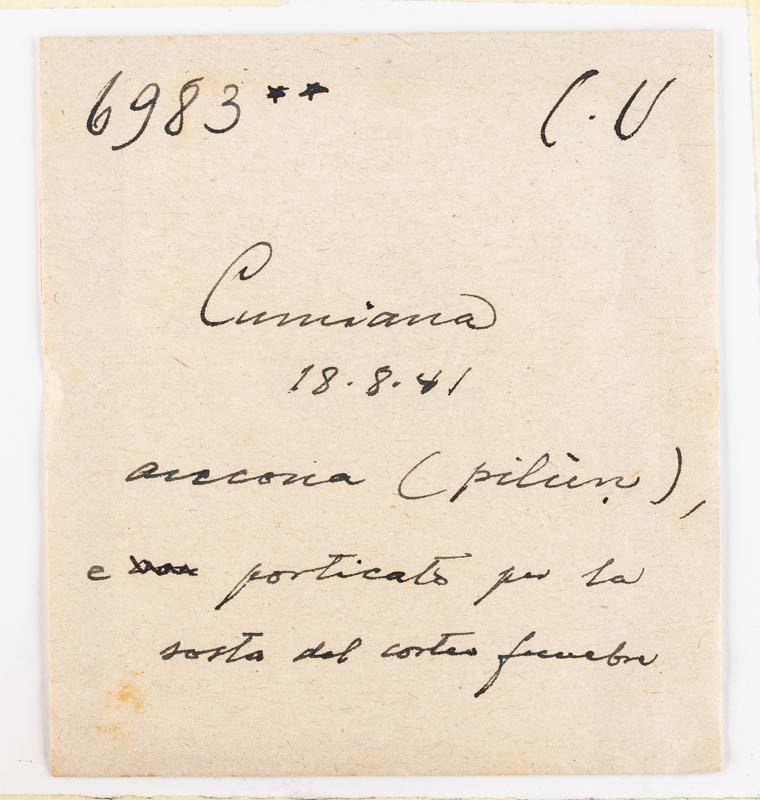 6983** C.V
Cumiana
18.8.41
ancona (pilùṇ),
e porticato per la
sosta del corteo funebre